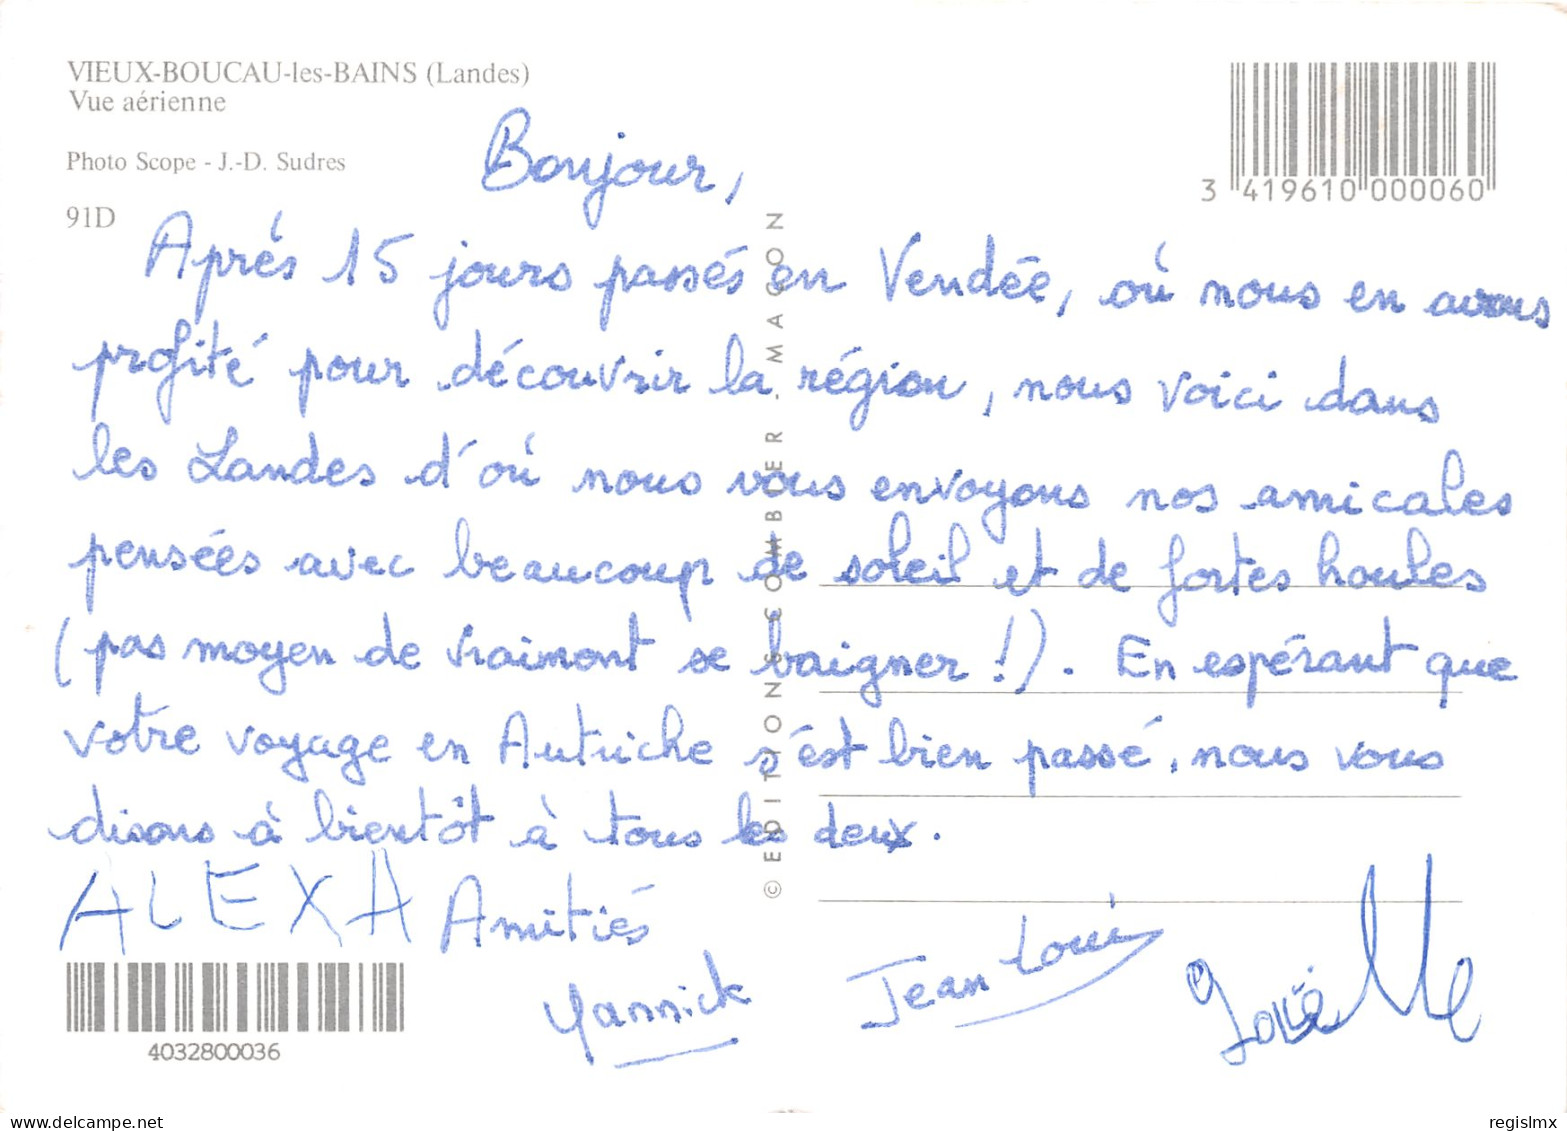 VIEUX-BOUCAU-les-BAINS (Landes)
Vue aérienne
Photo Scope - J.-D. Sudres
91D
3 419610 000060
Bonjour,
Après 15 jours passés en Vendée, où nous en avons
profité pour découvrir la région, nous voici dans
les Landes d'où nous vous envoyons nos amicales
pensées avec beaucoup de soleil et de fortes houles
(pas moyen de vraiment se baigner !). En espérant que
votre voyage en Autriche s'est bien passé, nous vous
disons à bientôt à tous les deux.
ALEXA Amitiés
Yannick Jean Louis Joëlle
© EDITIONS COMBIER - MACON
4032800036
regislmx